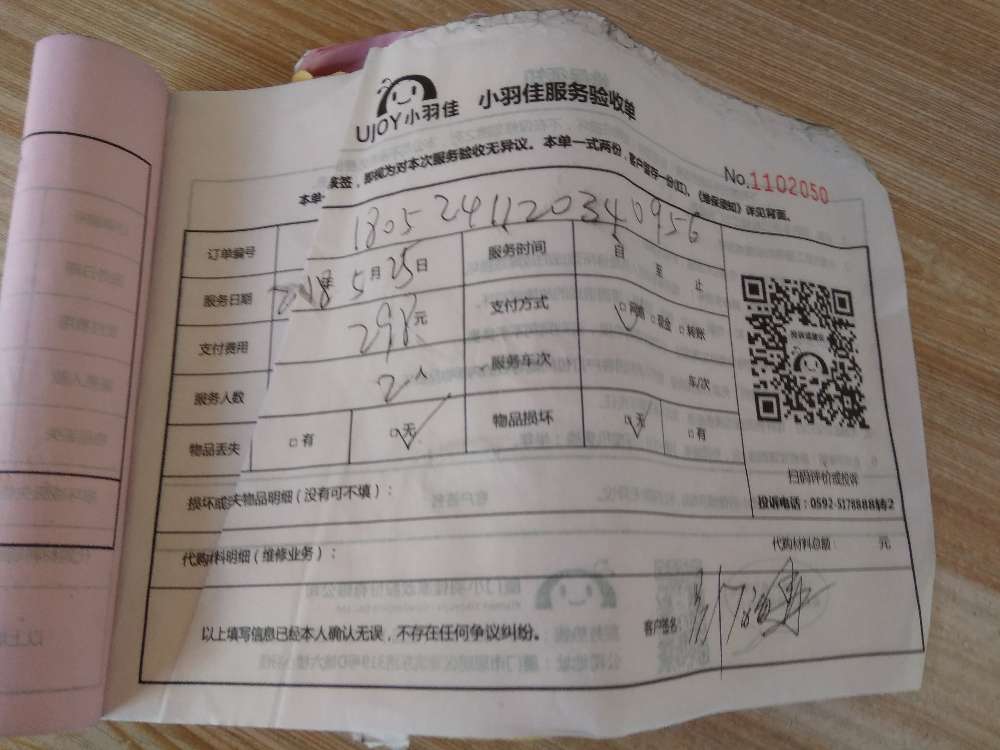 UJOY小羽佳 小羽佳服务验收单
本单 签,即视为对本次服务验收无异议。本单一式两份,客户留存一份(红)。《维保须知》详见背面。
No.1102050
订单编号 1805241120340956
服务日期 2018年5月25日 服务时间 自 至 止
支付费用 298元 支付方式 □网络 □现金 □转账
服务人数 2人 服务车次 车/次
物品丢失 □有 □无 物品损坏 □无 □有
扫码评价或投诉
投诉电话:0592-5178888转2
损坏或 失物品明细(没有可不填):
代购 料明细(维修业务): 代购材料总额: 元
以上填写信息已经本人确认无误,不存在任何争议纠纷。 客户签名: